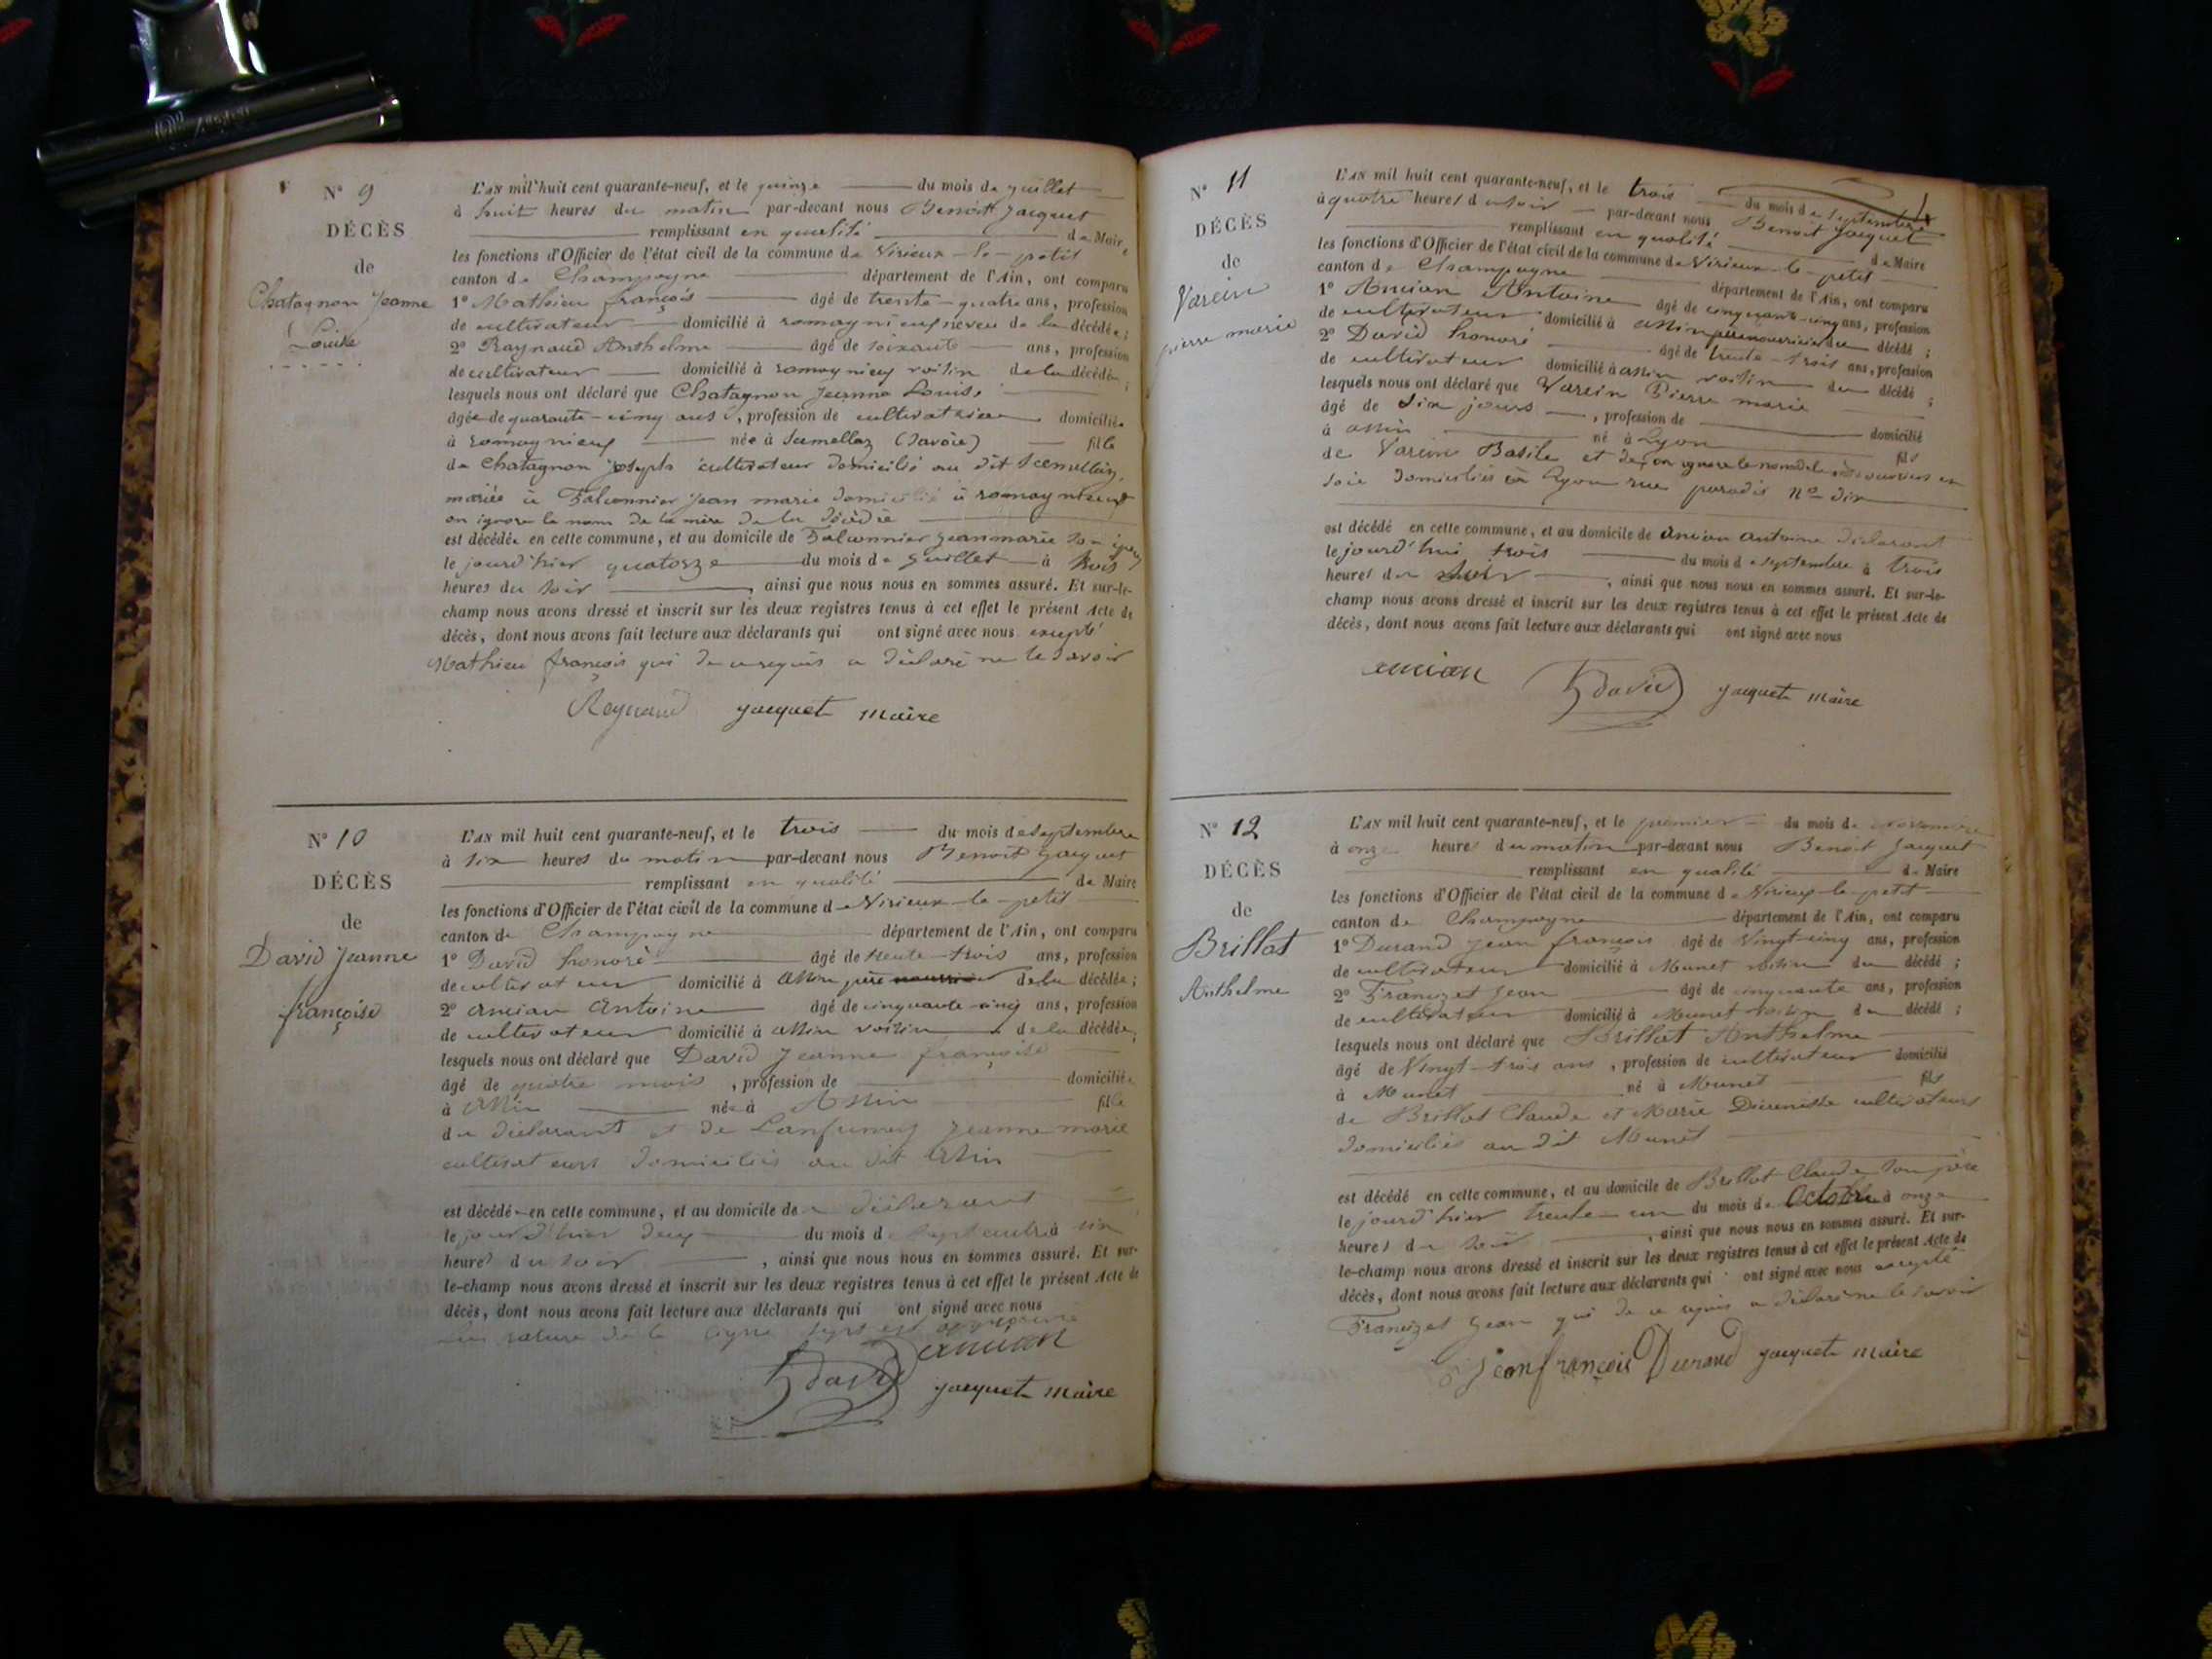 N° 9
DÉCÈS
de
Chatagnon Jeanne
Louise
L'AN mil huit cent quarante-neuf, et le quinze du mois de juillet
à huit heures du matin par-devant nous Benoit Jacquet
remplissant en qualité de Maire
les fonctions d'Officier de l'état civil de la commune de Virieux-le-petit
canton de Champagne département de l'Ain, ont comparu
1° Mathieu françois âgé de trente-quatre ans, profession
de cultivateur domicilié à romagnieux neveu de la décédée ;
2° Raynaud Anthelme âgé de soixante ans, profession
de cultivateur domicilié à romagnieux voisin de la décédée ;
lesquels nous ont déclaré que Chatagnon Jeanne Louise
âgée de quarante-cinq ans, profession de cultivatrice domiciliée
à romagnieux née à (Savoie) fille
de Chatagnon joseph cultivateur domicilié au dit
mariée à Falconnier Jean marie domicilié à romagnieux
on ignore le nom de la mère de la décédée
est décédée en cette commune, et au domicile de Falconnier Jean marie son époux
le jourd'hier quatorze du mois de juillet à trois
heures du soir , ainsi que nous nous en sommes assuré. Et sur-le-
champ nous avons dressé et inscrit sur les deux registres tenus à cet effet le présent Acte de
décès, dont nous avons fait lecture aux déclarants qui ont signé avec nous excepté
Mathieu françois qui de ce requis a déclaré ne le savoir
Reynaud jacquet maire
N° 10
DÉCÈS
de
David Jeanne
françoise
L'AN mil huit cent quarante-neuf, et le trois du mois de septembre
à six heures du matin par-devant nous Benoit Jacquet
remplissant en qualité de Maire
les fonctions d'Officier de l'état civil de la commune de Virieux-le-petit
canton de Champagne département de l'Ain, ont comparu
1° David honoré âgé de trente-trois ans, profession
de cultivateur domicilié à Assin père nourricier de la décédée ;
2° ancian Antoine âgé de cinquante-cinq ans, profession
de cultivateur domicilié à assin voisin de la décédée ;
lesquels nous ont déclaré que David Jeanne françoise
âgé de quatre mois , profession de domiciliée
à Assin née à Assin fille
du déclarant et de Lanfumey Jeanne marie
cultivateurs domiciliés au dit Assin
est décédée en cette commune, et au domicile de déclarant
le jourd'hier deux du mois de septembre à six
heures du soir , ainsi que nous nous en sommes assuré. Et sur-
le-champ nous avons dressé et inscrit sur les deux registres tenus à cet effet le présent Acte de
décès, dont nous avons fait lecture aux déclarants qui ont signé avec nous
rature de la ligne sept est approuvée
ancian
h david jacquet maire
N° 11
DÉCÈS
de
Varein
pierre marie
L'AN mil huit cent quarante-neuf, et le trois du mois de septembre
à quatre heures du soir par-devant nous Benoit Jacquet
remplissant en qualité de Maire
les fonctions d'Officier de l'état civil de la commune de Virieux-le-petit
canton de Champagne département de l'Ain, ont comparu
1° Ancian Antoine âgé de cinquante-cinq ans, profession
de cultivateur domicilié à assin père nourricier du décédé ;
2° David honoré âgé de trente-trois ans, profession
de cultivateur domicilié à assin voisin du décédé ;
lesquels nous ont déclaré que Varein Pierre marie
âgé de dix jours , profession de domicilié
à assin né à Lyon fils
de Varein Basile et de (on ignore le nom de la mère) ouvriers en
soie domiciliés à Lyon rue paradis n° dix
est décédé en cette commune, et au domicile de ancian antoine déclarant
le jourd'hui trois du mois de septembre à trois
heures du soir , ainsi que nous nous en sommes assuré. Et sur-le-
champ nous avons dressé et inscrit sur les deux registres tenus à cet effet le présent Acte de
décès, dont nous avons fait lecture aux déclarants qui ont signé avec nous
ancian h david jacquet maire
N° 12
DÉCÈS
de
Brillat
Anthelme
L'AN mil huit cent quarante-neuf, et le premier du mois de novembre
à onze heures du matin par-devant nous Benoit Jacquet
remplissant en qualité de Maire
les fonctions d'Officier de l'état civil de la commune de Virieux-le-petit
canton de Champagne département de l'Ain, ont comparu
1° Durand Jean françois âgé de Vingt-cinq ans, profession
de cultivateur domicilié à Munet voisin du décédé ;
2° Francizet Jean âgé de cinquante ans, profession
de cultivateur domicilié à Munet voisin du décédé ;
lesquels nous ont déclaré que Brillat Anthelme
âgé de Vingt-trois ans , profession de cultivateur domicilié
à Munet né à Munet fils
de Brillat Claude et Marie cultivateurs
domiciliés au dit Munet
est décédé en cette commune, et au domicile de Brillat Claude son père
le jourd'hier trente-un du mois de Octobre à onze
heures du soir , ainsi que nous nous en sommes assuré. Et sur-
le-champ nous avons dressé et inscrit sur les deux registres tenus à cet effet le présent Acte de
décès, dont nous avons fait lecture aux déclarants qui ont signé avec nous excepté
Francizet Jean qui de ce requis a déclaré ne le savoir
Jean françois Durand jacquet maire